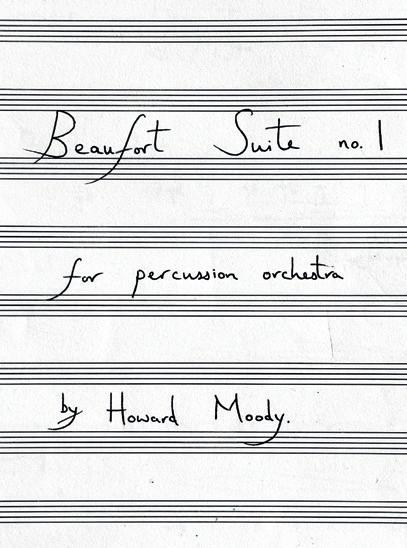 Beaufort Suite no. 1
for percussion orchestra
by Howard Moody.